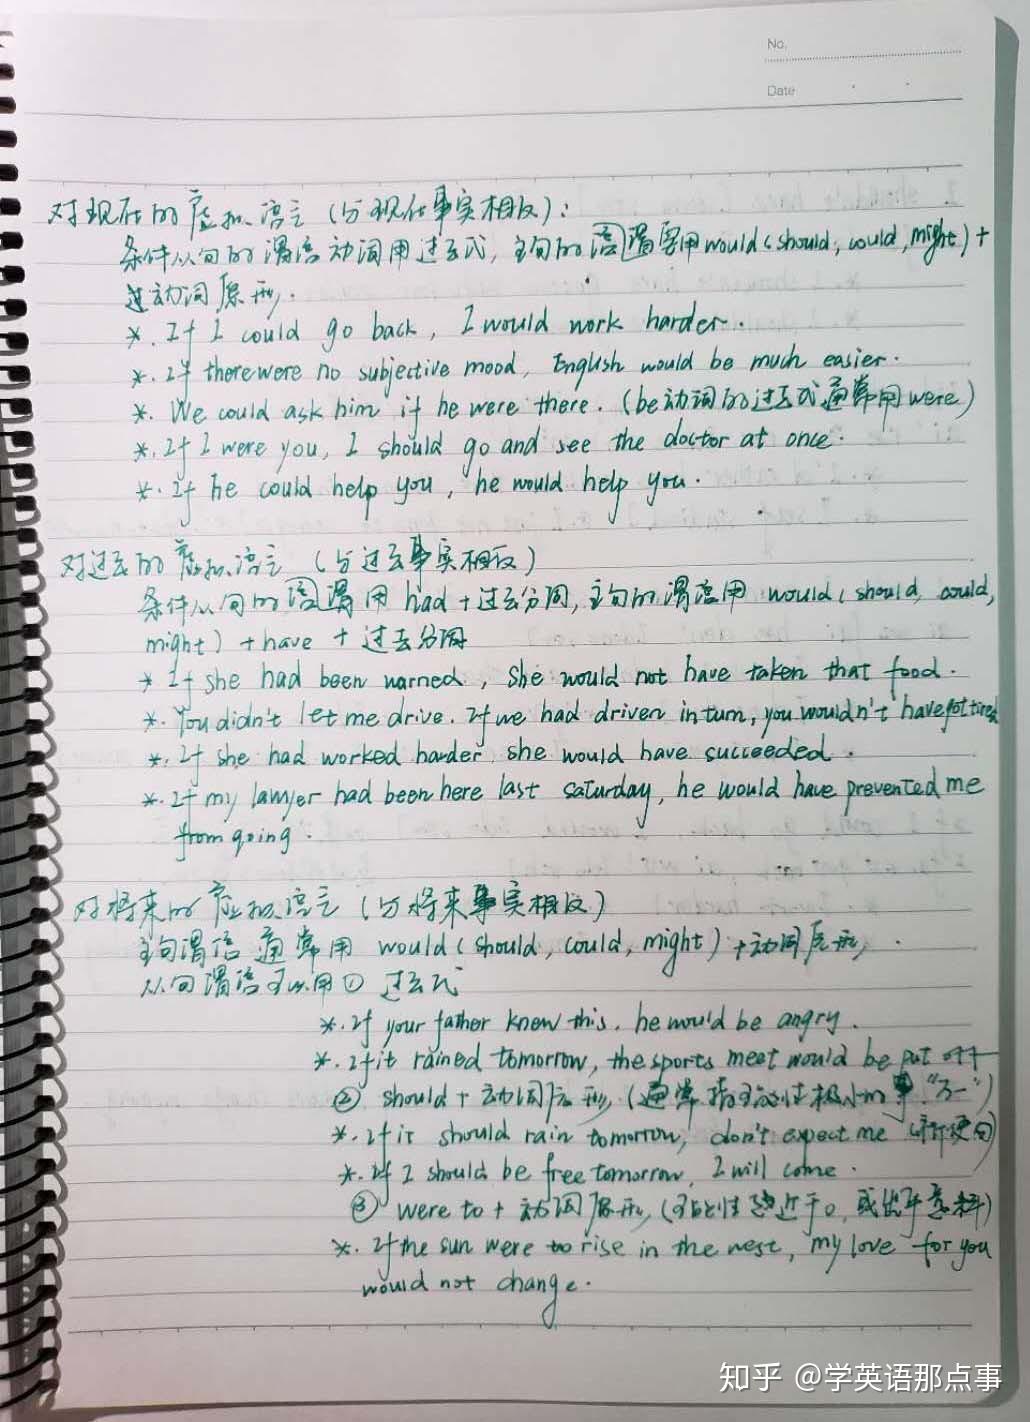 No.
Date
对现在的虚拟语气（与现在事实相反）：
条件从句的谓语动词用过去式，主句的谓语要用would（should, could, might）+
动词原形.
*. If I could go back, I would work harder.
*. If there were no subjective mood, English would be much easier.
*. We could ask him if he were there.（be动词的过去式通常用were）
*. If I were you, I should go and see the doctor at once.
*. If he could help you, he would help you.
对过去的虚拟语气（与过去事实相反）
条件从句的谓语用had+过去分词，主句的谓语用 would（should, could,
might）+have + 过去分词
* If she had been warned, she would not have taken that food.
*. You didn't let me drive. If we had driven in turn, you wouldn't have got tired
*. If she had worked harder, she would have succeeded.
*. If my lawyer had been here last saturday, he would have prevented me
from going.
对将来的虚拟语气（与将来事实相反）
主句谓语通常用 would（should, could, might）+动词原形，
从句谓语可以用① 过去式
*. If your father knew this, he would be angry.
*. If it rained tomorrow, the sports meet would be put off
② should + 动词原形，（通常指可能性极小的事 “万一”）
*. If it should rain tomorrow, don't expect me（祈使句）
*. If I should be free tomorrow, I will come.
③ were to + 动词原形，（可能性接近于0，或出乎意料）
*. If the sun were to rise in the west, my love for you
would not change.
知乎 @学英语那点事